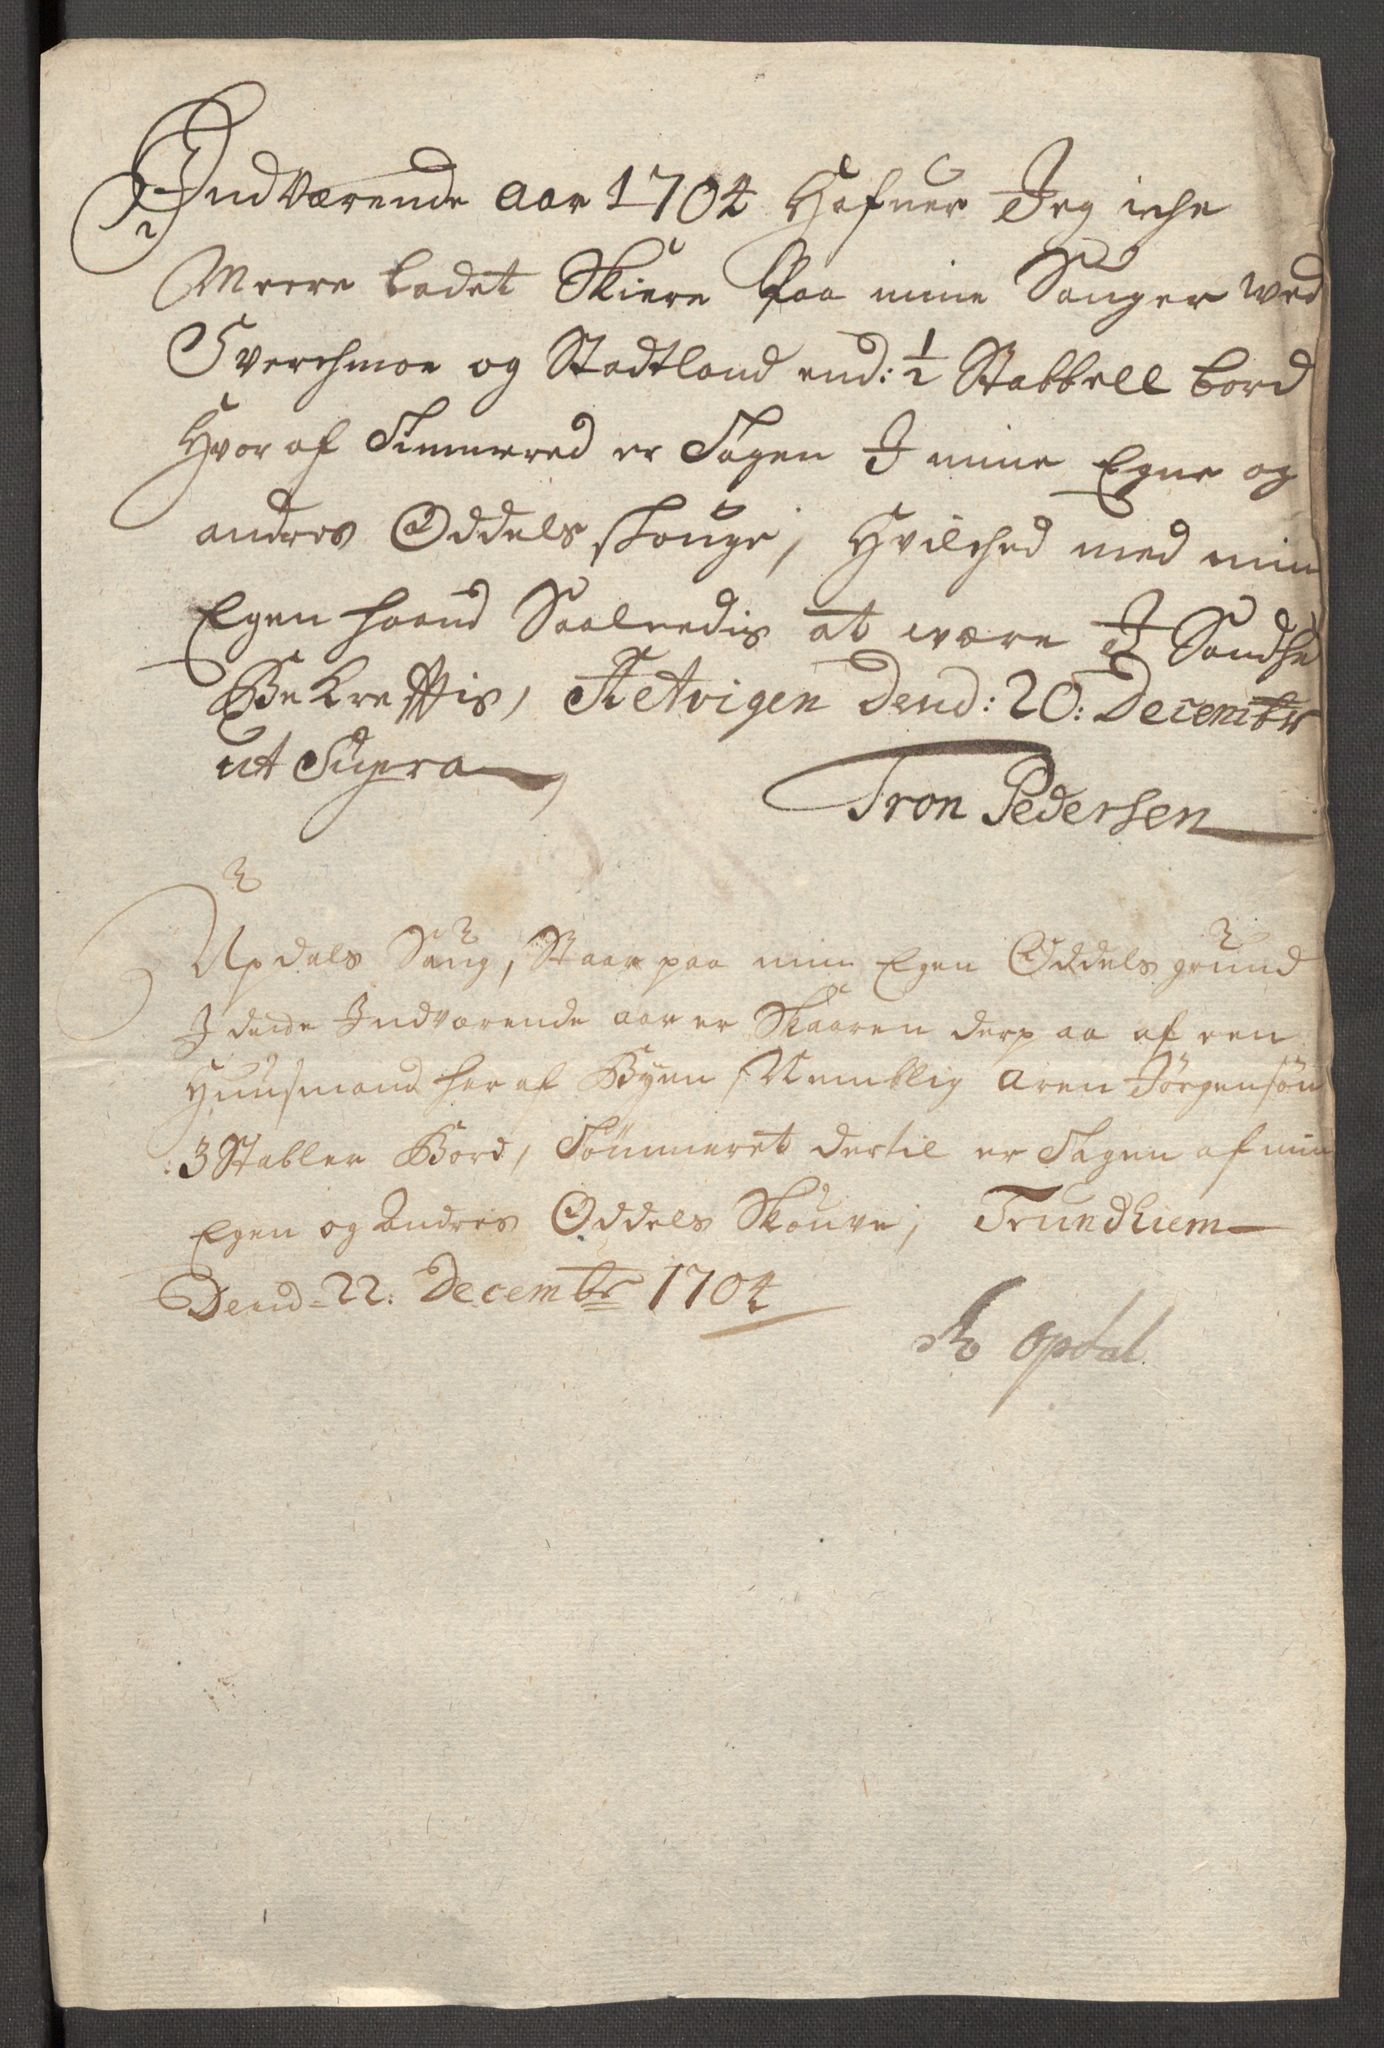 Indværende aar 1704 Hafuer Jeg iche
Meere ladet Skiere Paa mine Sauger wed
Sverchmoe og Stadtland end: ½ Stabbell bord
Hvor af Timmered er Tagen I mine Egne og
andres Oddels skouge, Hvilched med min
Egen haand Saaleedis at være I Sandhed
Bekreftis, Kletvigen Dend: 20: Decembr
ut Supra,
Tron Pedersen
Updals Saug, Staar paa min Egen Oddels grund
I dette Indværende aar er Skaaren derpaa af een
Huusmand her af Byen, Nemblig Aren Jörgensøn
3 Stabler Bord, Tømmeret dertil er Tagen af min
Egen og Andres Oddels Skouve, Trundhiem
Dend 22: Decembr 1704
Opdal